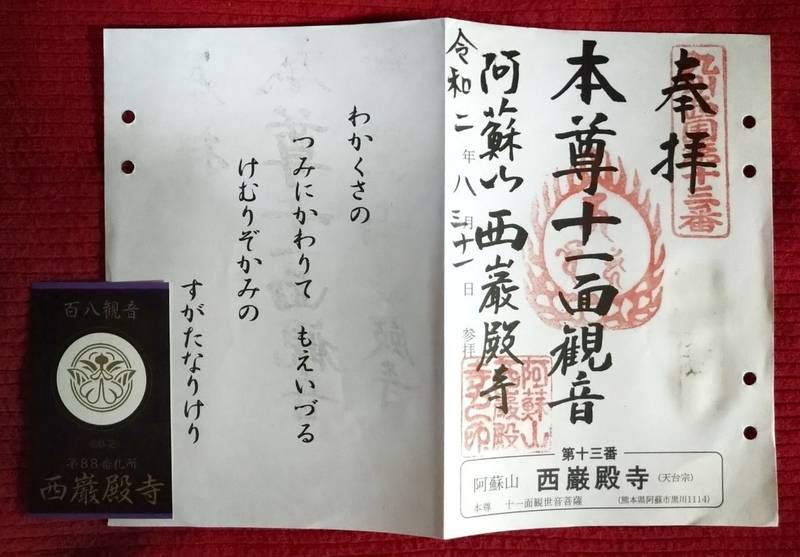 奉拝
本尊十一面観音
阿蘇山 西巌殿寺
令和二年八月三十一日 参拝
第十三番
阿蘇山 西巌殿寺 (天台宗)
本尊 十一面観世音菩薩 (熊本県阿蘇市黒川1114)
わかくさの
つみにかわりて もえいづる
けむりぞかみの
すがたなりけり
百八観音
第88番札所
西巌殿寺